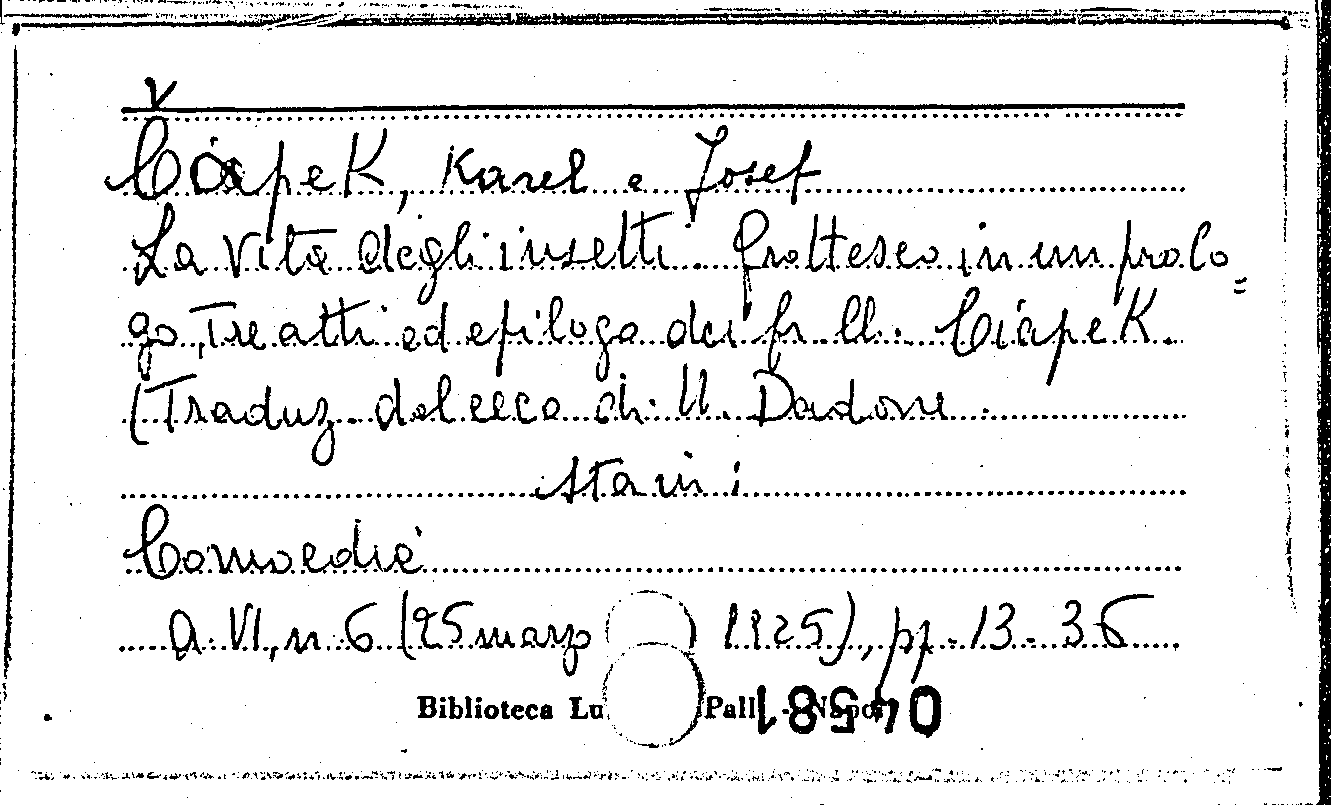 Čapek, Karel e Josef
La vita degli insetti. Grottesco in un prolo=
go, tre atti ed epilogo dei fr.lli. Ciapek.
(Traduz. dal ceco di U. Dadone.
Sta in:
Comoedia
a. VI, n. 6 (25 marzo 1925), pp. 13-36
Biblioteca Lu Pall - Napoli